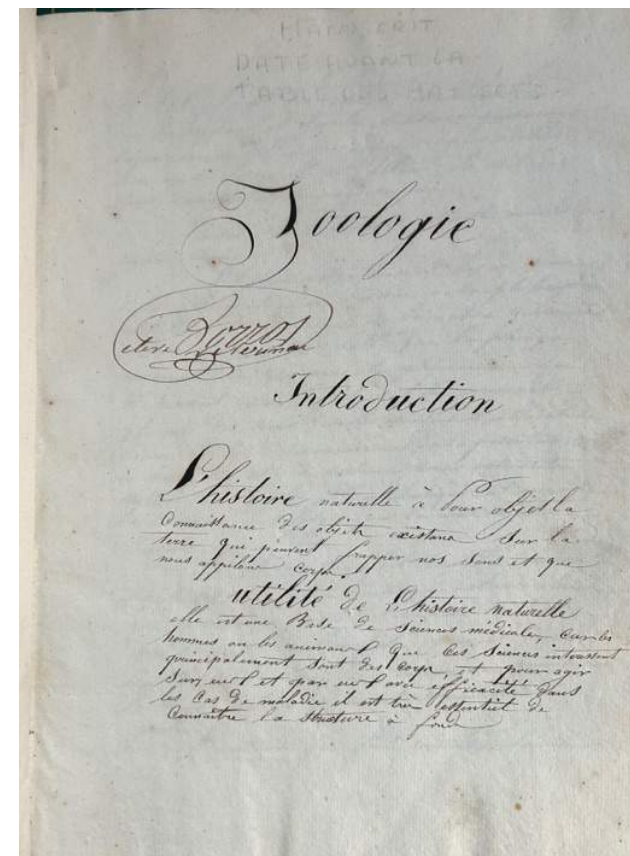 MANUSCRIT
DATE AVANT LA
TABLE DES MATIERES
Zoologie
Introduction
L'histoire naturelle à Pour objet la
Connaissance des objets existans Sur la
terre qui peuvent frapper nos Sens et que
nous appilons Corps.
utilité de L'histoire naturelle
elle est une Base de Sciences médicale, Car les
hommes ou les animaux que Ces Sciences intressent
principalement Sont des Corps, et pour agir
Sur eux et par eux avec efficacité dans
les Cas de maladie il est très essentiel de
Connaître la Structure à fond